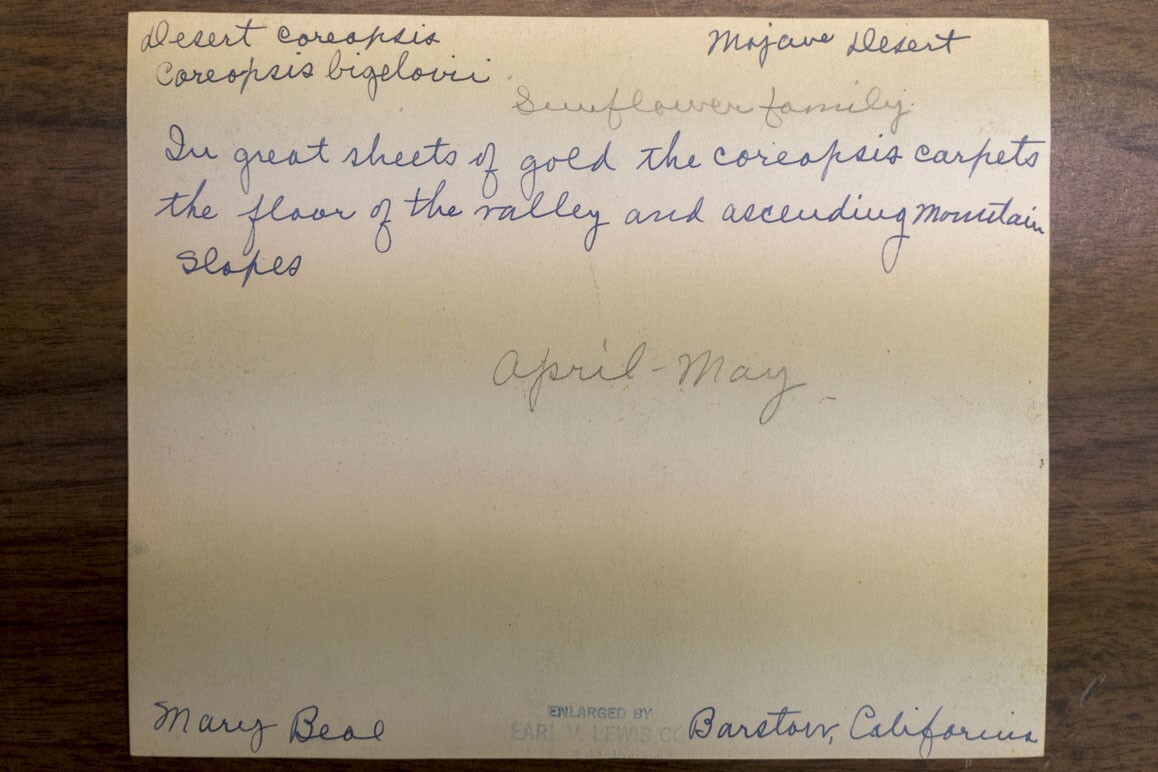 Desert coreopsis Mojave Desert
Coreopsis bigelovii
Sunflower family
In great sheets of gold the coreopsis carpets
the floor of the valley and ascending mountain
slopes
April-May
ENLARGED BY
EARL V. LEWIS CO
Mary Beal Barstow, California